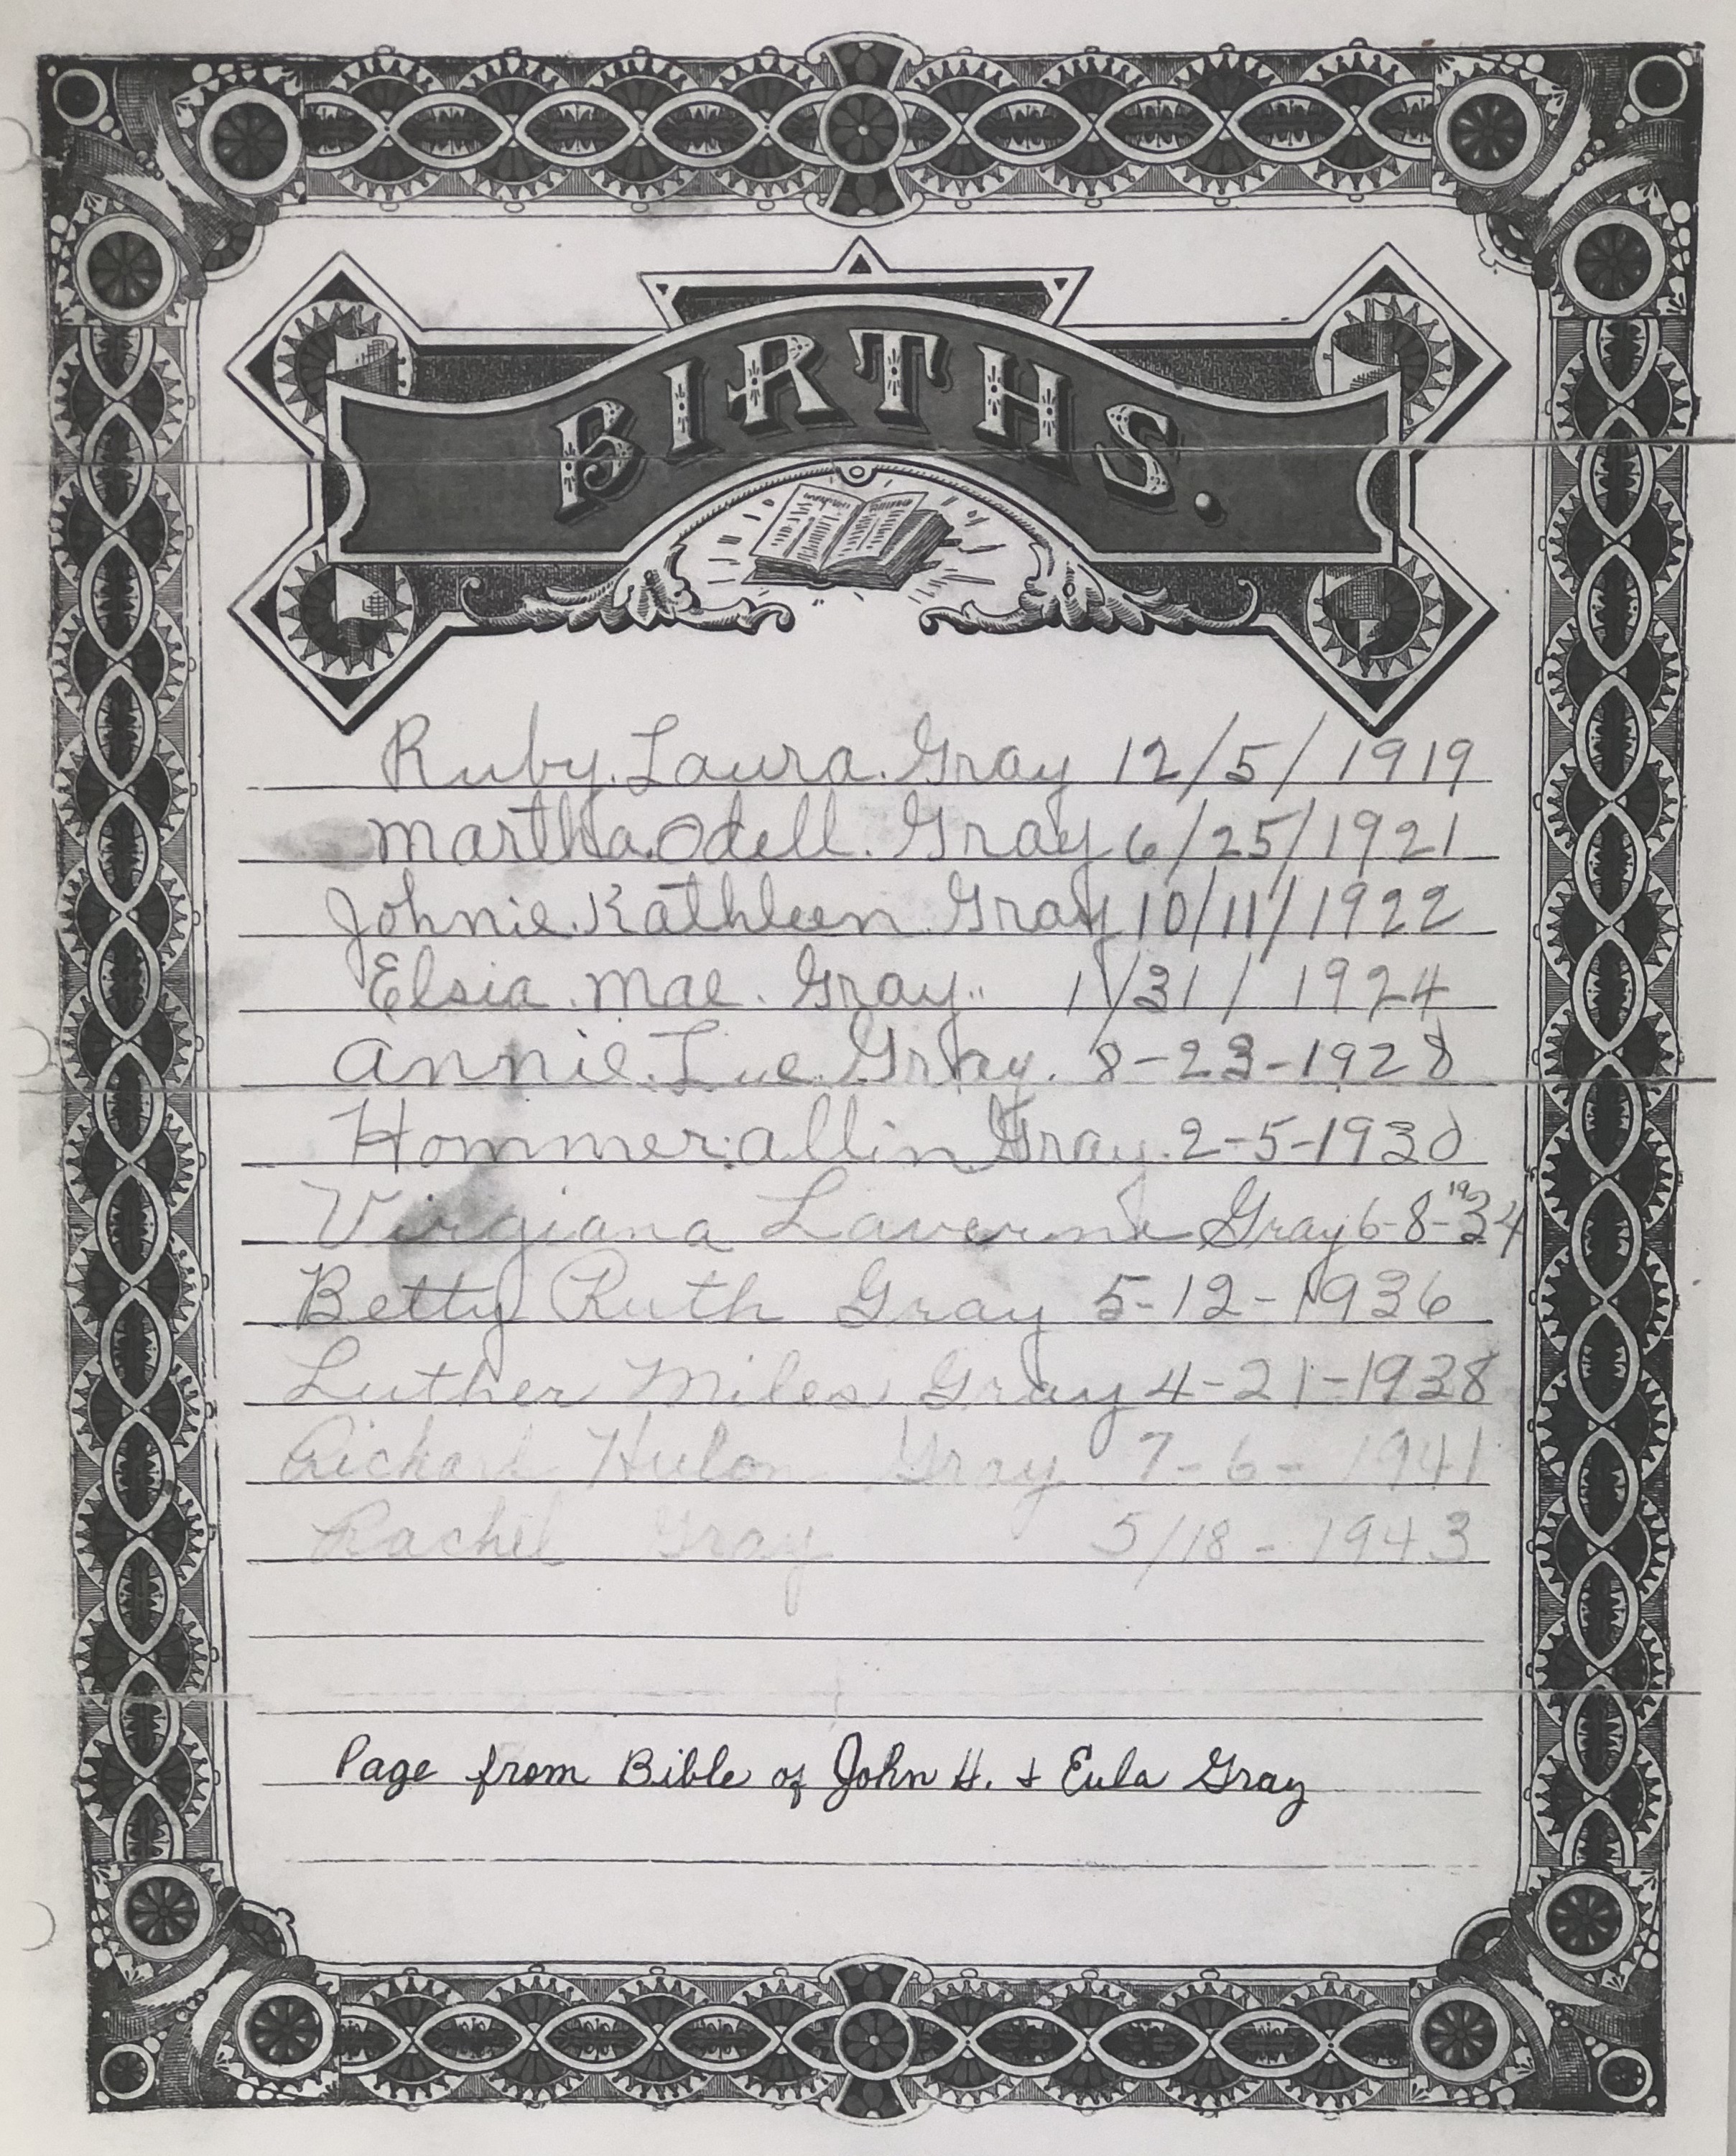 BIRTHS.
Ruby. Laura. Gray 12/5/1919
Martha. Odell. Gray 6/25/1921
Johnie. Kathleen Gray 10/11/1922
Elsia. Mae. Gray.. 1/31/1924
Annie. Lue. Gray. 8-23-1928
Hommer. allin Gray. 2-5-1930
Virgiana Laverne Gray 6-8-1934
Betty Ruth Gray 5-12-1936
Luther Miles Gray 4-21-1938
Richard Hulon Gray 7-6-1941
Rachel Gray 5/18-1943
Page from Bible of John H. & Eula Gray